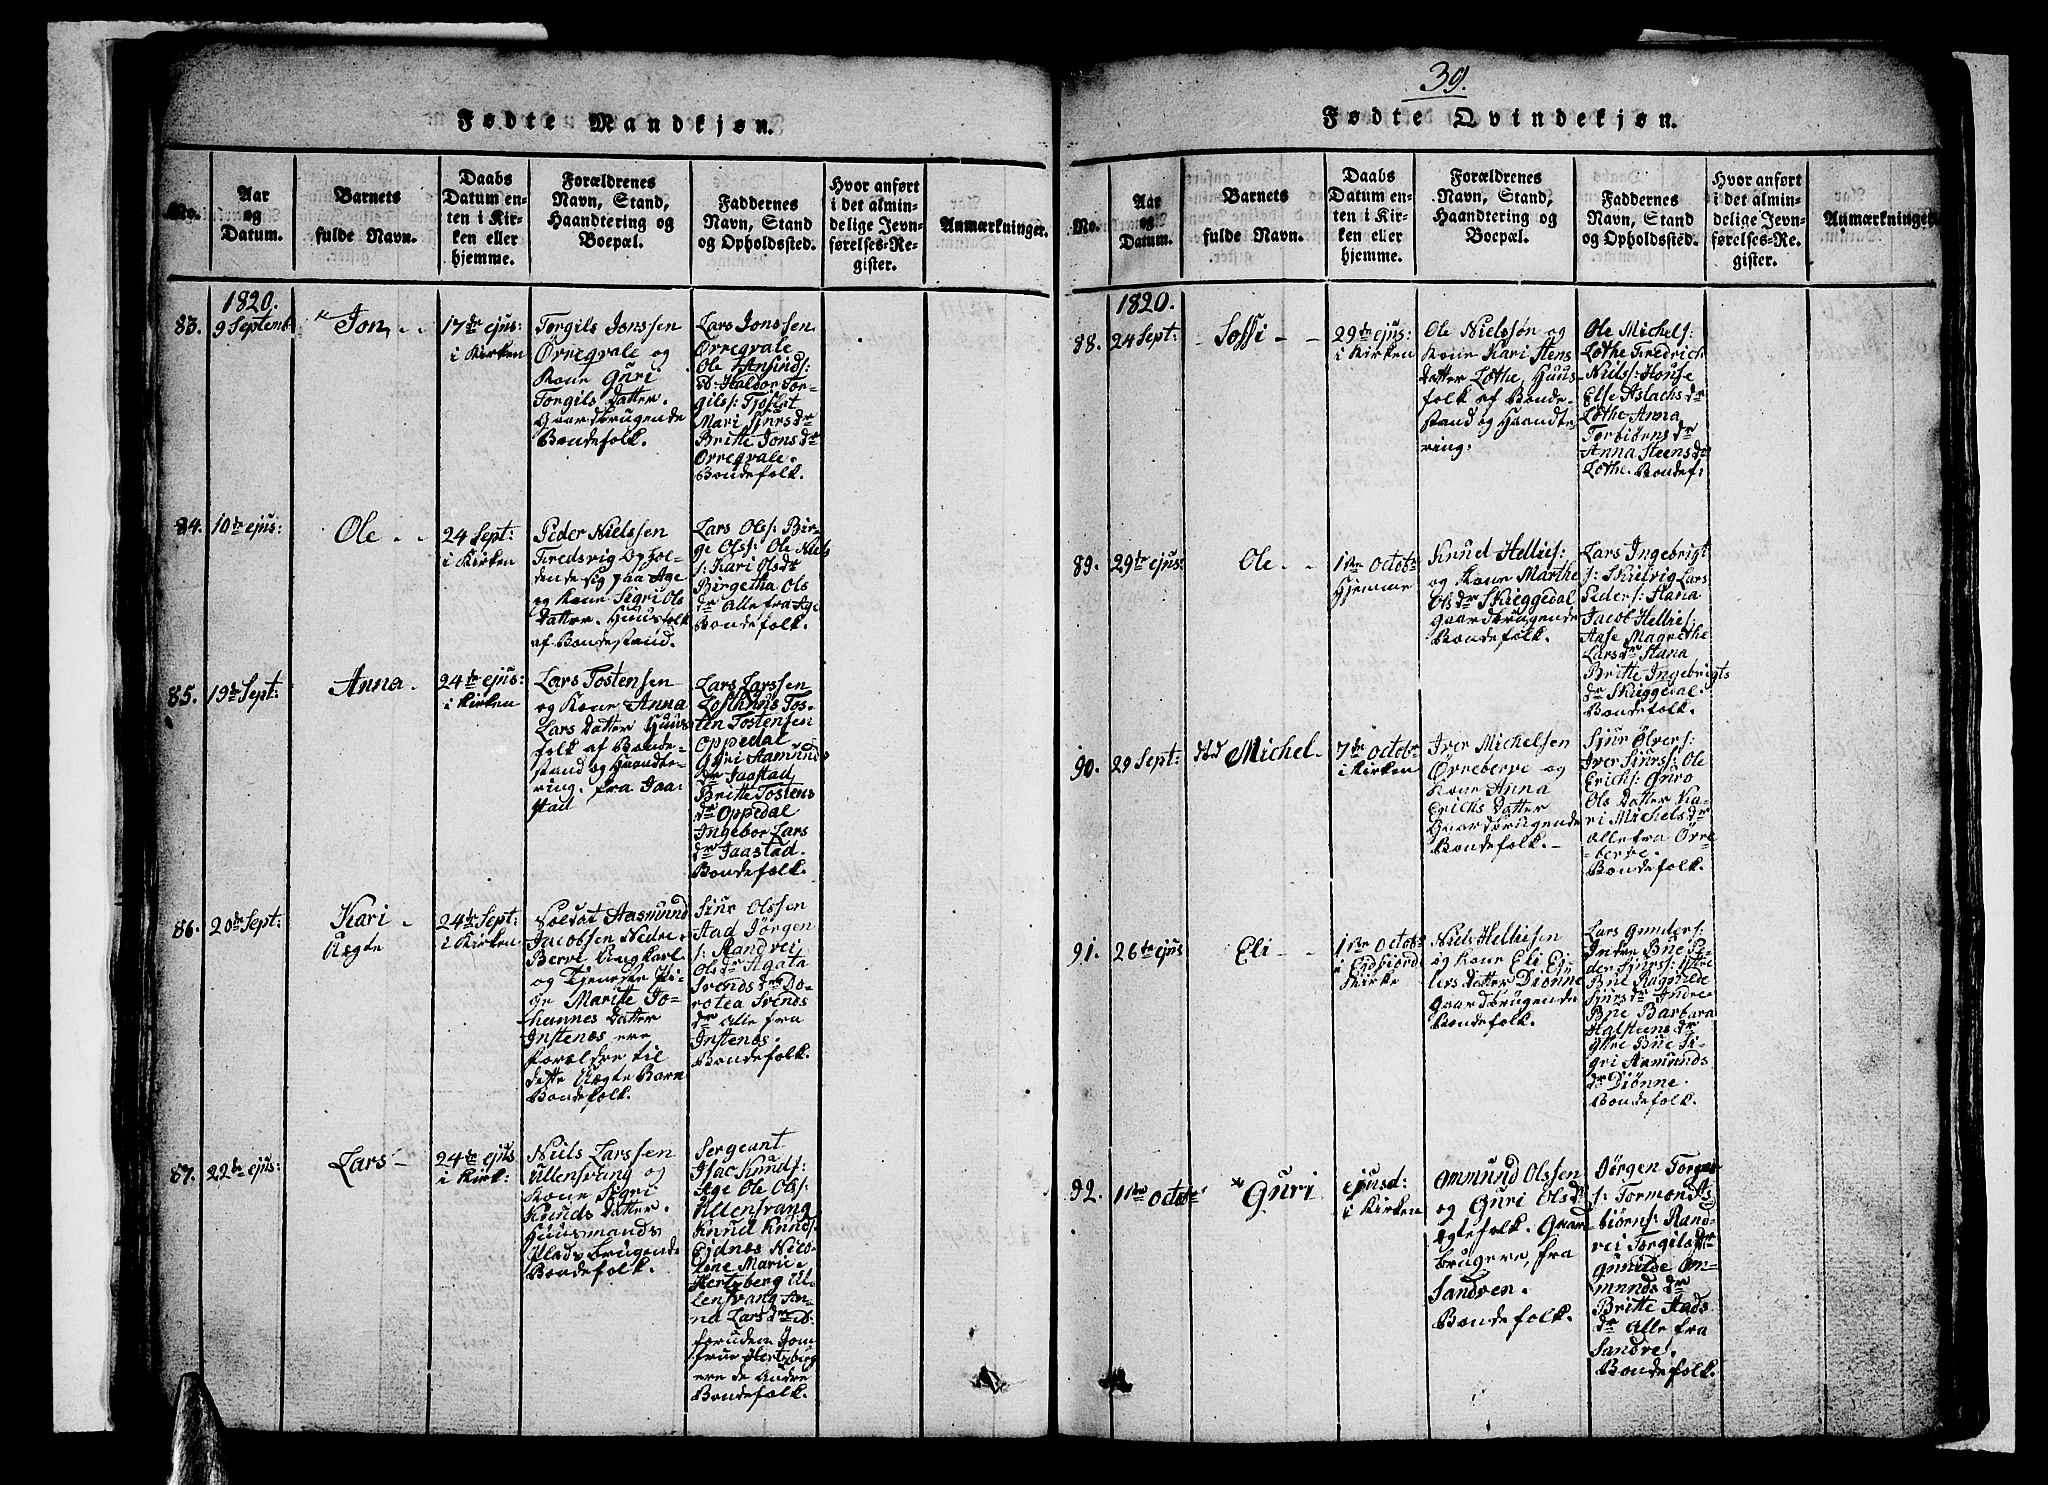 39.
Fødte Mandkjøn.
No.
Aar
og
Datum.
Barnets
fulde Navn.
Daabs
Datum en-
ten i Kir-
ken eller
hjemme.
Forældrenes
Navn, Stand,
Haandtering og
Boepæl.
Faddernes
Navn, Stand
og Opholdssted.
Hvor anført
i det almin-
delige Jevn-
førelses-Re-
gister.
Anmærkninger.
1820.
83.
9 Septemb
Jon
17de ejus:
i Kirken
Torgils Jonssen
Ørregvale og
Kone Guri
Torgils Datter.
Gaardbrugende
Bondefolk.
Lars Jonssen
Ørregvale
Ole
Haldor Tor-
gils:
Mari Sjursdr
Britte Jonsdr
Ørregvale.
Bondefolk.
84.
10de ejus:
Ole
24 Sept:
i Kirken
Peder Nielssen
Fredsvig Ophol-
dende sig paa Age
og Kone Sigri Ols
Datter. Huusfolk
af Bondestand.
Lars Ols: Bir-
ge Ols: Ole Niels
s: Kari Olsdr
Birgetha Ols
dr alle fra Age
Bondefolk.
85.
19de Sept:
Anna
24de ejus:
i Kirken
Lars Tostensen
og Kone Anna
Lars Datter Huus
folk af Bonde-
stand og Haandte-
ring. fra Jaa-
stad
Lars Larssen
Lofthuus Tos-
ten Tostensen
Oppedal
Guri Aamunds
dr Jaastad
Britte Tostens
dr Oppedal
Ingebor Lars
dr Jaastad.
Bondefolk.
86.
20de Sept:
Kari
Uægte
24de Sept:
i Kirken
Soldat Aasmund
Jacobsen Nedre
Berve Ungkarl
og Tjeneste Pi-
ge Maritte Jo-
hannes Datter
Instenæs ere
Forældre til
dette Uægte Barn
Bondefolk.
Sjur Olssen
Aad Jørgen
s: Randvei
Olsdr Agata
Svends dr Do-
rotea Svends
dr alle fra
Instenæs.
Bondefolk.
87.
22de ejus:
Lars
24de ejus
i Kirk:
Niels Larssen
Ullensvang og
Kone Sigri
Knuds Datter.
Huusmands
Plads brugende
Bondefolk.
Sergeant
Isac Knuds:
Age Ole Ols:
Ullensvang
Knud Knuds:
Ejdnæs Nico-
line Marie
Hertzberg Ul-
lensvang An-
na Larsdr
foruden Jom-
frue Hertzberg
ere de Andre
Bondefolk.
Fødte Qvindekjøn.
No.
Aar
og
Datum.
Barnets
fulde Navn.
Daabs
Datum en-
ten i Kir-
ken eller
hjemme.
Forældrenes
Navn, Stand,
Haandtering og
Boepæl.
Faddernes
Navn, Stand
og Opholdssted.
Hvor anført
i det almin-
delige Jevn-
førelses-Re-
gister.
Anmærkninger.
1820.
88.
24 Sept:
Soffi
29de ejus:
i Kirken
Ole Nielssøn og
Kone Kari Stens
Datter Lothe, Huus
folk af Bonde-
stand og Haandte-
ring.
Ole Michels:
Lothe Fredrich
Niels: House
Else Aslachsdr
Lothe Anna
Torbiørns dr
Anna Steensdr
Lothe. Bondef:
89.
29de ejus:
Ole
1ste Octobr
Hjemme
Knud Hellies:
og Kone Marthe
Olsdr Skieggedal
Gaardbrugende
Bondefolk.
Lars Ingebrigt
s: Lars
Peders: Stana
Jacob Hellies:
Aase Magrethe
Larsdr Stana
Britte Ingebrigts
dr Skieggedal.
Bondefolk.
90.
29 Sept:
Michel
7de Octobr
i Kirken
Iver Michelsen
Ørreberve og
Kone Anna
Erichs Datter
Gaardbrugende
Bondefolk.
Sjur Ølvers:
Iver Sjurs: Ole
Erichs: Guro
Ols Datter Ka-
ri Michelsdr
alle fra Ørre-
berve.
Bondefolk.
91.
26te ejus
Eli
1ste Octobr
i Eidfiord
Kirke
Niels Hellisen
og Kone Eli Ej-
lers Datter Diønne
Gaardbrugende
Bondefolk.
Lars Gunders:
Indre Bue Pe-
der Sjurs: Ytre
Bue Ragnilde
Sjursdr Indre
Bue Barbara
Halsteens dr
Ytre Bue Si-
gri Aamunds
dr Diønne.
Bondefolk.
92.
1ste Octobr
Guri
ejusd:
i Kirken
Ommund Olssen
og Guri Olsdr
Egtefolk. Gaard
brugere, fra
Sandven.
Bondefolk.
Jørgen Torgils
s: Tormond As
biørns: Rand
vei Torgilsdr
Gunilde Om-
munds dr
Britte Aads
dr alle fra
Sandve.
Bondefolk.